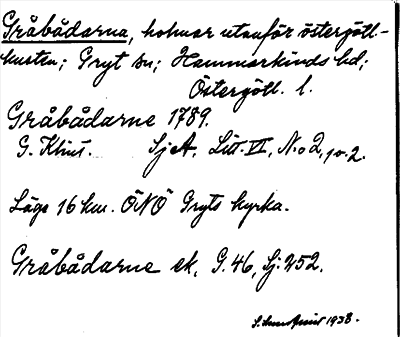 Gråbådarna, holmar utanför östergötl-
kusten; Gryt sn; Hammarkinds hd;
Östergötl. l.
Gråbådarne 1789.
G. Klint. SjA, Litt. VI, N:o 2, p. 2.
Läge 16 km. ÖNÖ Gryts kyrka.
Gråbådarne ek. G. 46, Sj: 252.
1938.